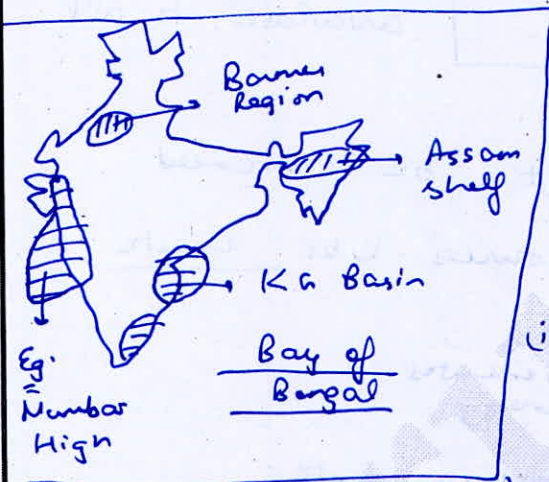 Barmer
Region
Assam
shelf
KG Basin
Bay of
Bengal
Eg.
Mumbai
High
(i